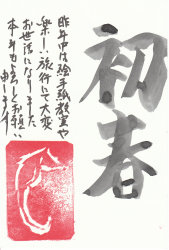 初春
昨年中は絵手紙教室や
楽しい旅行にて大変
お世話になりました
本年もよろしくお願い
申し上げます